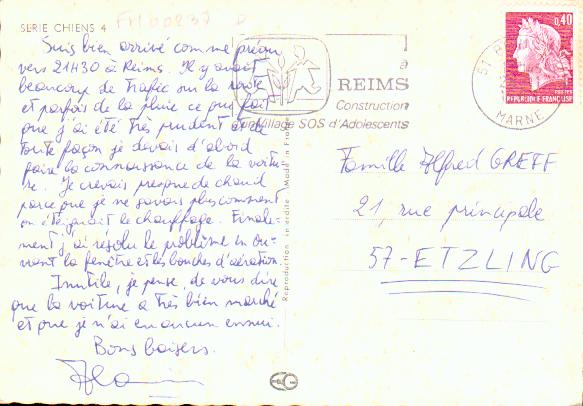 SERIE CHIENS 4
FM00237 D
Suis bien arrivé comme prévu
vers 21H30 à Reims. Il y avait
beaucoup de trafic sur la route
et parfois de la pluie ce qui fait
que j'ai été très prudent et de
toute façon je devais d'abord
faire la connaissance de la voitu-
re. Je crevais presque de chaud
parce que je ne savais plus comment
on éteignait le chauffage. Finale-
ment j'ai résolu le problème en ou-
vrant la fenêtre et les bouches d'aération
Inutile, je pense, de vous dire
que la voiture a très bien marché
et que je n'ai eu aucun ennui.
Bons baisers.
Alain
Reproduction interdite Made in France
à
REIMS
Construction
Village SOS d'Adolescents
51
MARNE
0,40
POSTES
REPUBLIQUE FRANÇAISE
Famille Alfred GREFF
21, rue principale
57 - ETZLING